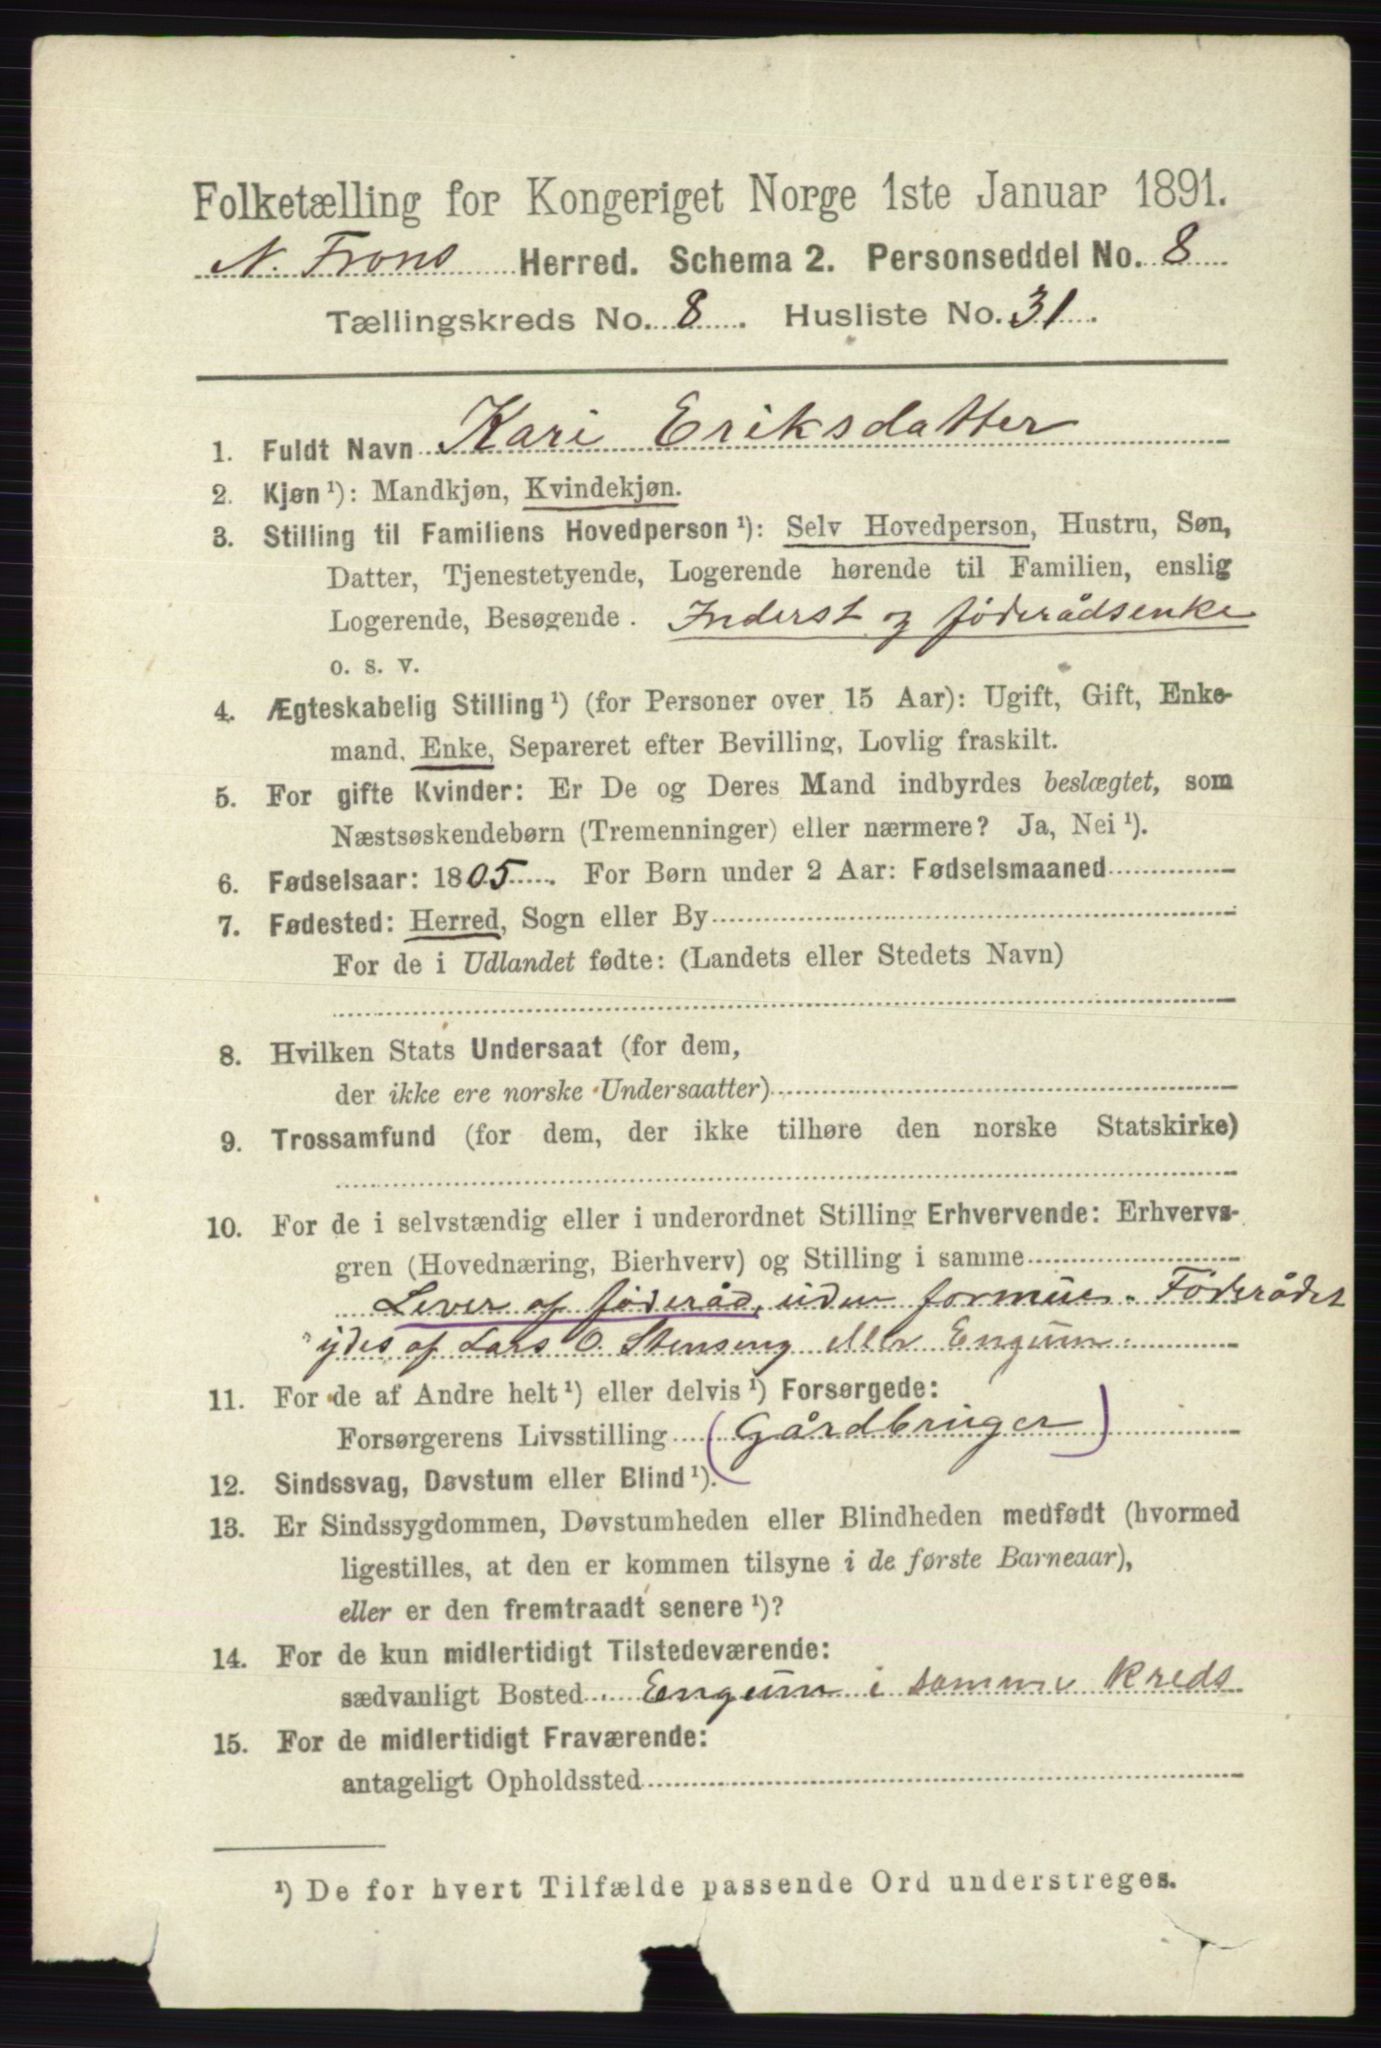 Folketælling for Kongeriget Norge 1ste Januar 1891.
N. Frons Herred. Schema 2. Personseddel No. 8
Tællingskreds No. 8. Husliste No. 31.
1. Fuldt Navn Kari Eriksdatter
2. Kjøn¹): Mandkjøn, Kvindekjøn.
3. Stilling til Familiens Hovedperson¹): Selv Hovedperson, Hustru, Søn,
Datter, Tjenestetyende, Logerende hørende til Familien, enslig
Logerende, Besøgende. Inderst og föderådsenke
o. s. v.
4. Ægteskabelig Stilling¹) (for Personer over 15 Aar): Ugift, Gift, Enke-
mand, Enke, Separeret efter Bevilling, Lovlig fraskilt.
5. For gifte Kvinder: Er De og Deres Mand indbyrdes beslægtet, som
Næstsøskendebørn (Tremenninger) eller nærmere? Ja, Nei¹).
6. Fødselsaar: 1805. For Børn under 2 Aar: Fødselsmaaned
7. Fødested: Herred, Sogn eller By
For de i Udlandet fødte: (Landets eller Stedets Navn)
8. Hvilken Stats Undersaat (for dem,
der ikke ere norske Undersaatter)
9. Trossamfund (for dem, der ikke tilhøre den norske Statskirke)
10. For de i selvstændig eller i underordnet Stilling Erhvervende: Erhvervs-
gren (Hovednæring, Bierhverv) og Stilling i samme
Lever af föderåd, uden formue. Föderådet
ydes af Lars O. Stenseng eller Engum.
11. For de af Andre helt¹) eller delvis¹) Forsørgede:
Forsørgerens Livsstilling (Gårdbruger)
12. Sindssvag, Døvstum eller Blind¹).
13. Er Sindssygdommen, Døvstumheden eller Blindheden medfødt (hvormed
ligestilles, at den er kommen tilsyne i de første Barneaar),
eller er den fremtraadt senere¹)?
14. For de kun midlertidigt Tilstedeværende:
sædvanligt Bosted Engum i samme kreds
15. For de midlertidigt Fraværende:
antageligt Opholdssted
¹) De for hvert Tilfælde passende Ord understreges.